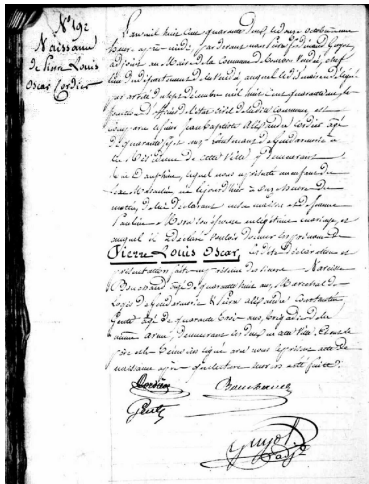 N° 192
Naissance
de Pierre Louis
Oscar Cordier
L'an mil huit cent quarante deux, le dix octobre une
heure après midi, pardevant nous
adjoint au Maire de la Commune de Bourbon Vendée, chef
lieu du département de la Vendée auquel
par arrêté du sept Décembre mil huit cent quarante
fonctions d'officier de l'état civil de la dite commune, est
comparu le sieur Jean Baptiste Alexandre Cordier âgé
de quarante ans, Lieutenant de Gendarmerie à
la Résidence de cette Ville y demeurant
Rue Dauphine, lequel nous a présenté un enfant du
sexe Masculin né aujourd'hui à onze heures du
matin, de lui déclarant et de Jeanne
Pauline son épouse en légitime mariage, et
auquel il a déclaré vouloir donner les prénoms de
Pierre Louis Oscar, les dites déclaration et
présentation faites en présence de Narcisse
Bouchaud âgé de quarante huit ans, Marechal des
Logis de Gendarmerie & Alexandre Constantin
Genty âgé de quarante trois ans, Brigadier de la
même arme, demeurant les deux en cette Ville, et ont le
père et les témoins signé avec nous le présent acte de
naissance après que lecture leur en a été faite.
Cordier
Genty
Guyot
adj.